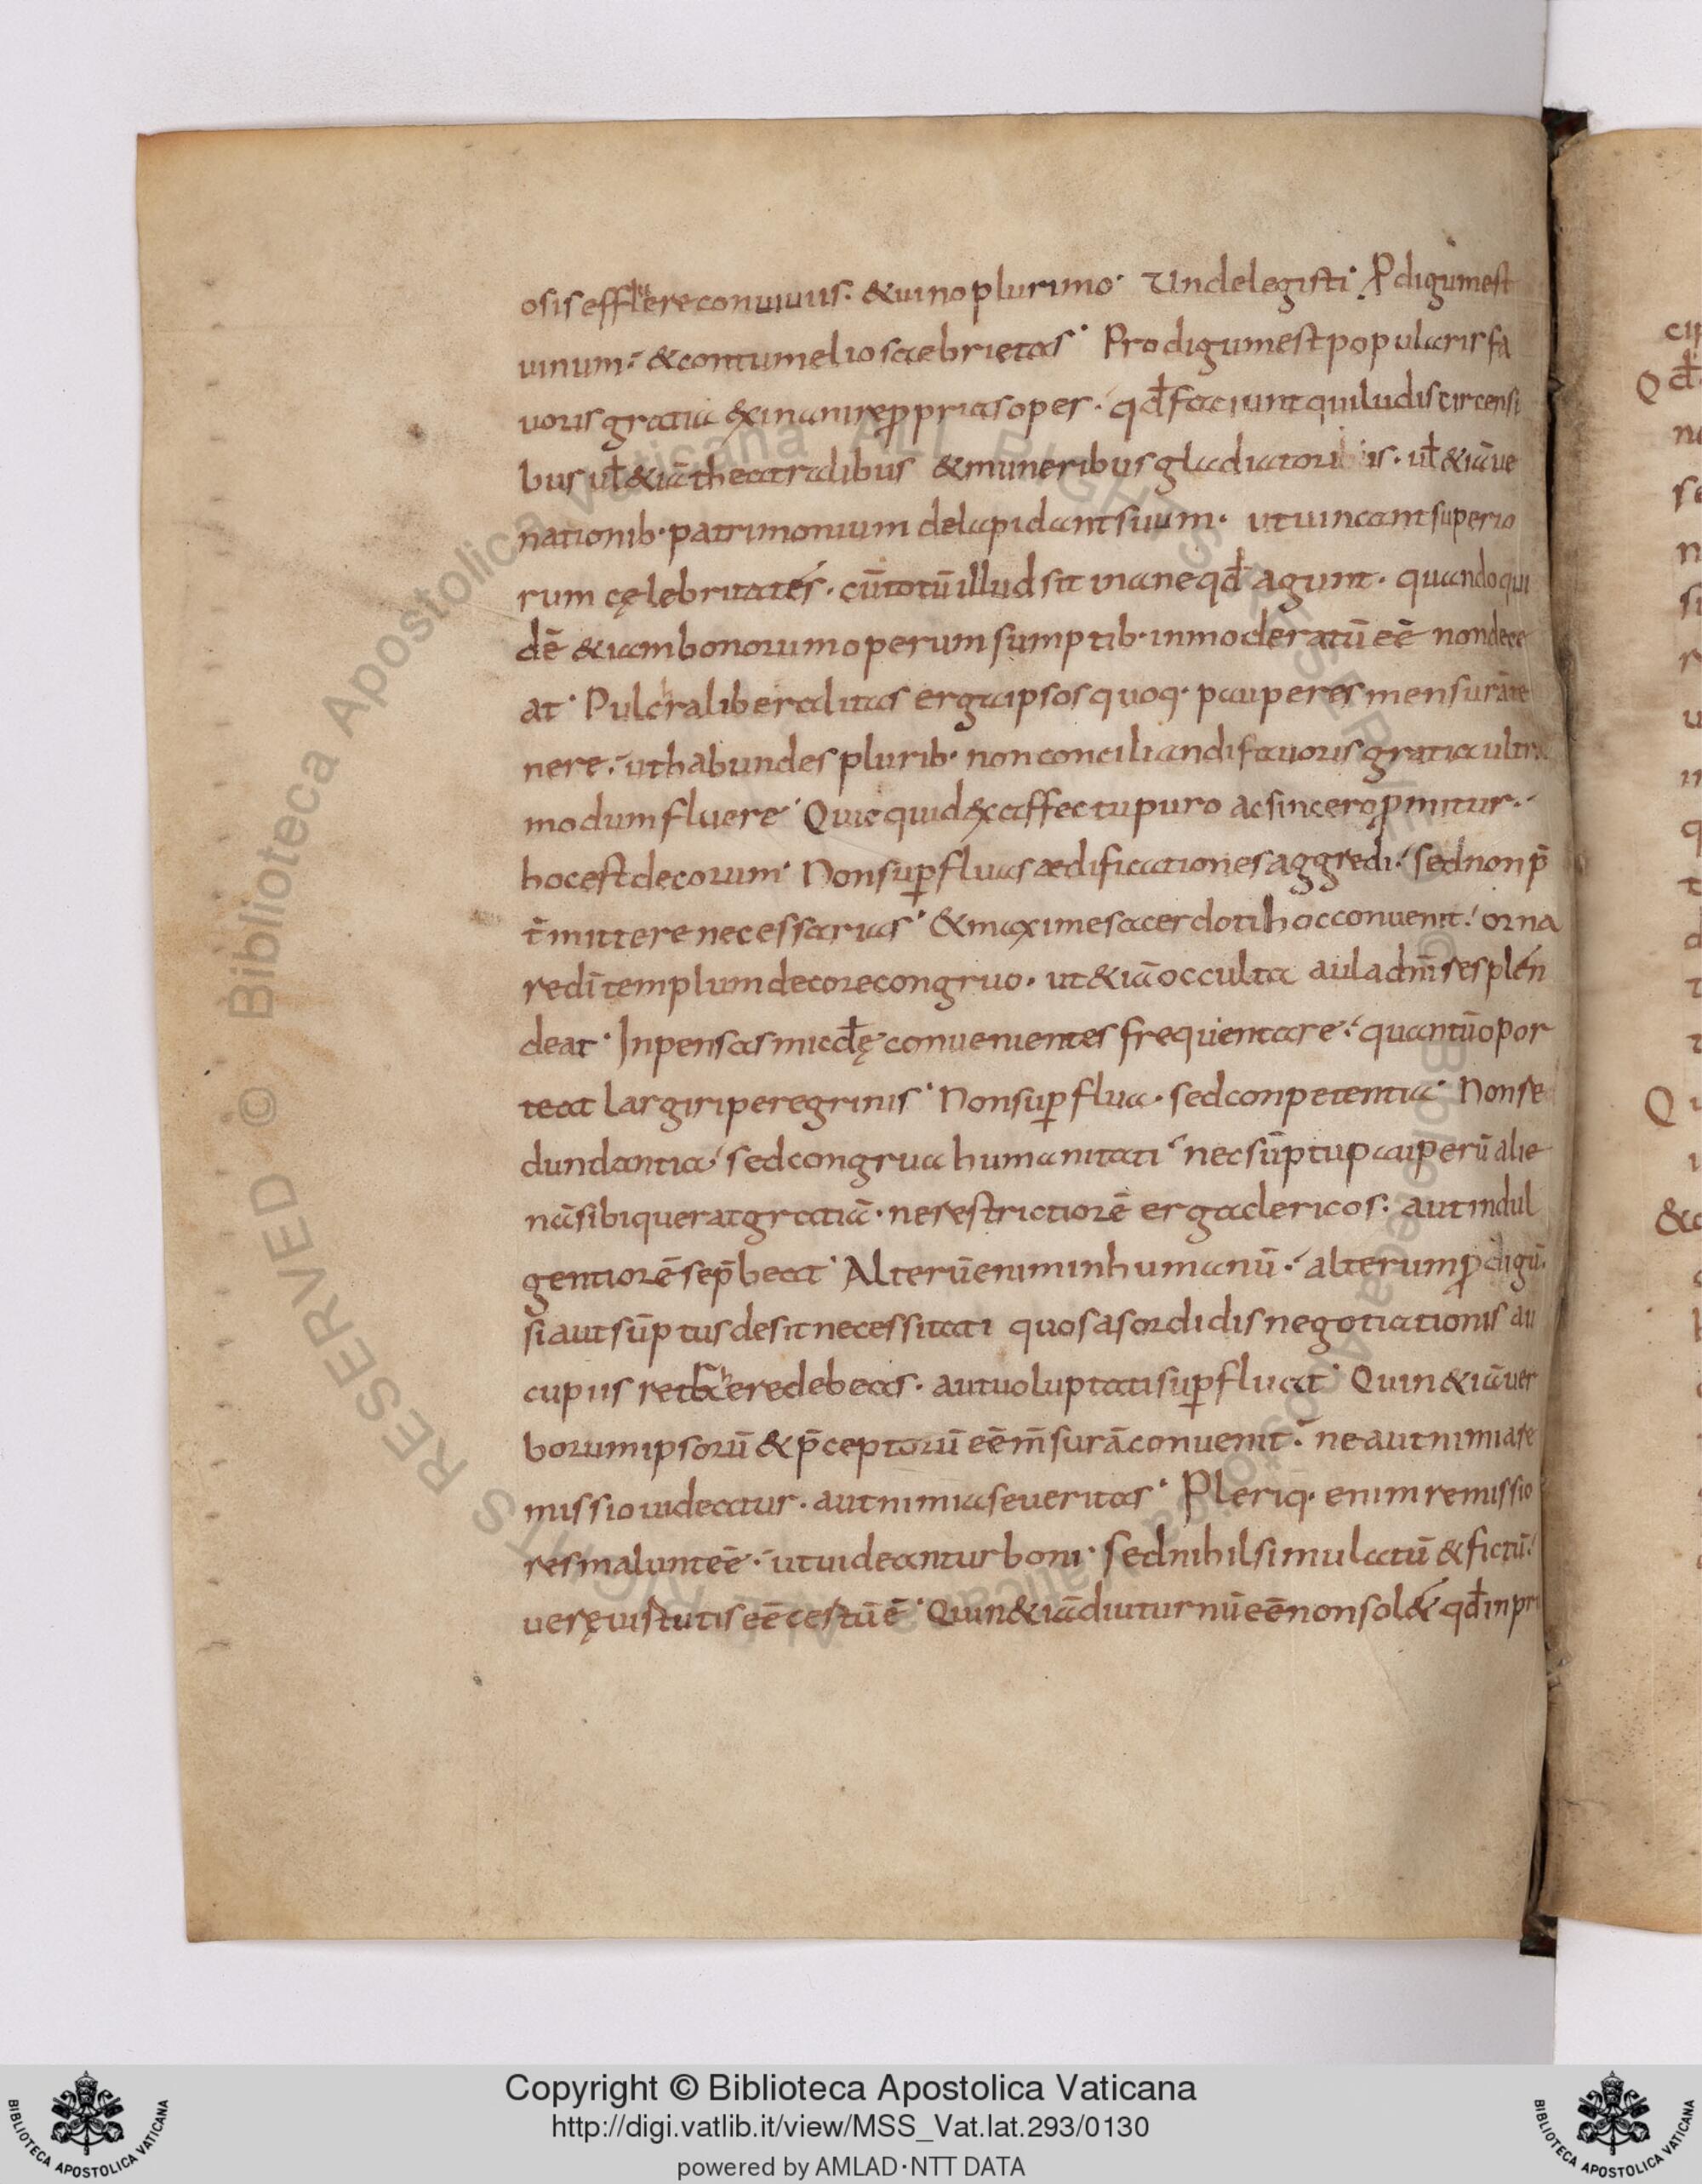 osis effluere conuiuiis · & uino plurimo · Unde legisti · Pdigum est
uinum · & contumeliosa ebrietas · Prodigum est popularis fa
uoris gratia exinanire ppriasopes · qđ faciunt qui ludis circensi
bus uł &iā theatralibus & muneribus gladiatoriis · uł &iā ue
nationib· patrimonium delapidant suum · ut uincant superio
rum cęlebritates · cū totū illud sit inane qđ agunt · quandoqui
dē &iam bonorum operum sumptib· inmoderatū eē non dece
at · Pulchra liberalitas erga ipsos quoq· pauperes mensurā te
nere · ut habundes plurib· non conciliandi fauoris gratia ultra
modum fluere · Quicquid ex affectu puro ac sincero pmitur ·
hoc est decorum · Non supfluas ædificationes aggredi · sed non p̄
t̄mittere necessarias · & maxime sacerdoti hoc conuenit · orna
re dī templum decore congruo · ut &iā occulta aula dn̄i resplen
deat · Inpensas micđę conuenientes frequentare · quantū opor
teat largiri peregrinis · Non supflua · sed conpetentia · Non re
dundantia · sed congrua humanitati · nec sūptu pauperū alie
nā sibi querat gratiā · ne restrictiorē erga clericos · aut indul
gentiorē se p̄beat · Alterū enim inhumanū · alterum pdigū ·
si aut sūptus desit necessitati quos a sordidis negotiationis au
cupiis retrahere debeas · aut uoluptati supfluat · Quin &iā uer
borum ipsorū & p̄ceptorū eē m̄surā conuenit · ne aut nimia re
missio uideatur · aut nimia seueritas · Pleriq· enim remissio
res malunt eē · ut uideantur boni · sed nihil simulatū & fictū ·
uerę uirtutis eē certū ē · Quin &iā diuturnū eē non sol& · qđ in pri
Copyright © Biblioteca Apostolica Vaticana
http://digi.vatlib.it/view/MSS_Vat.lat.293/0130
powered by AMLAD·NTT DATA